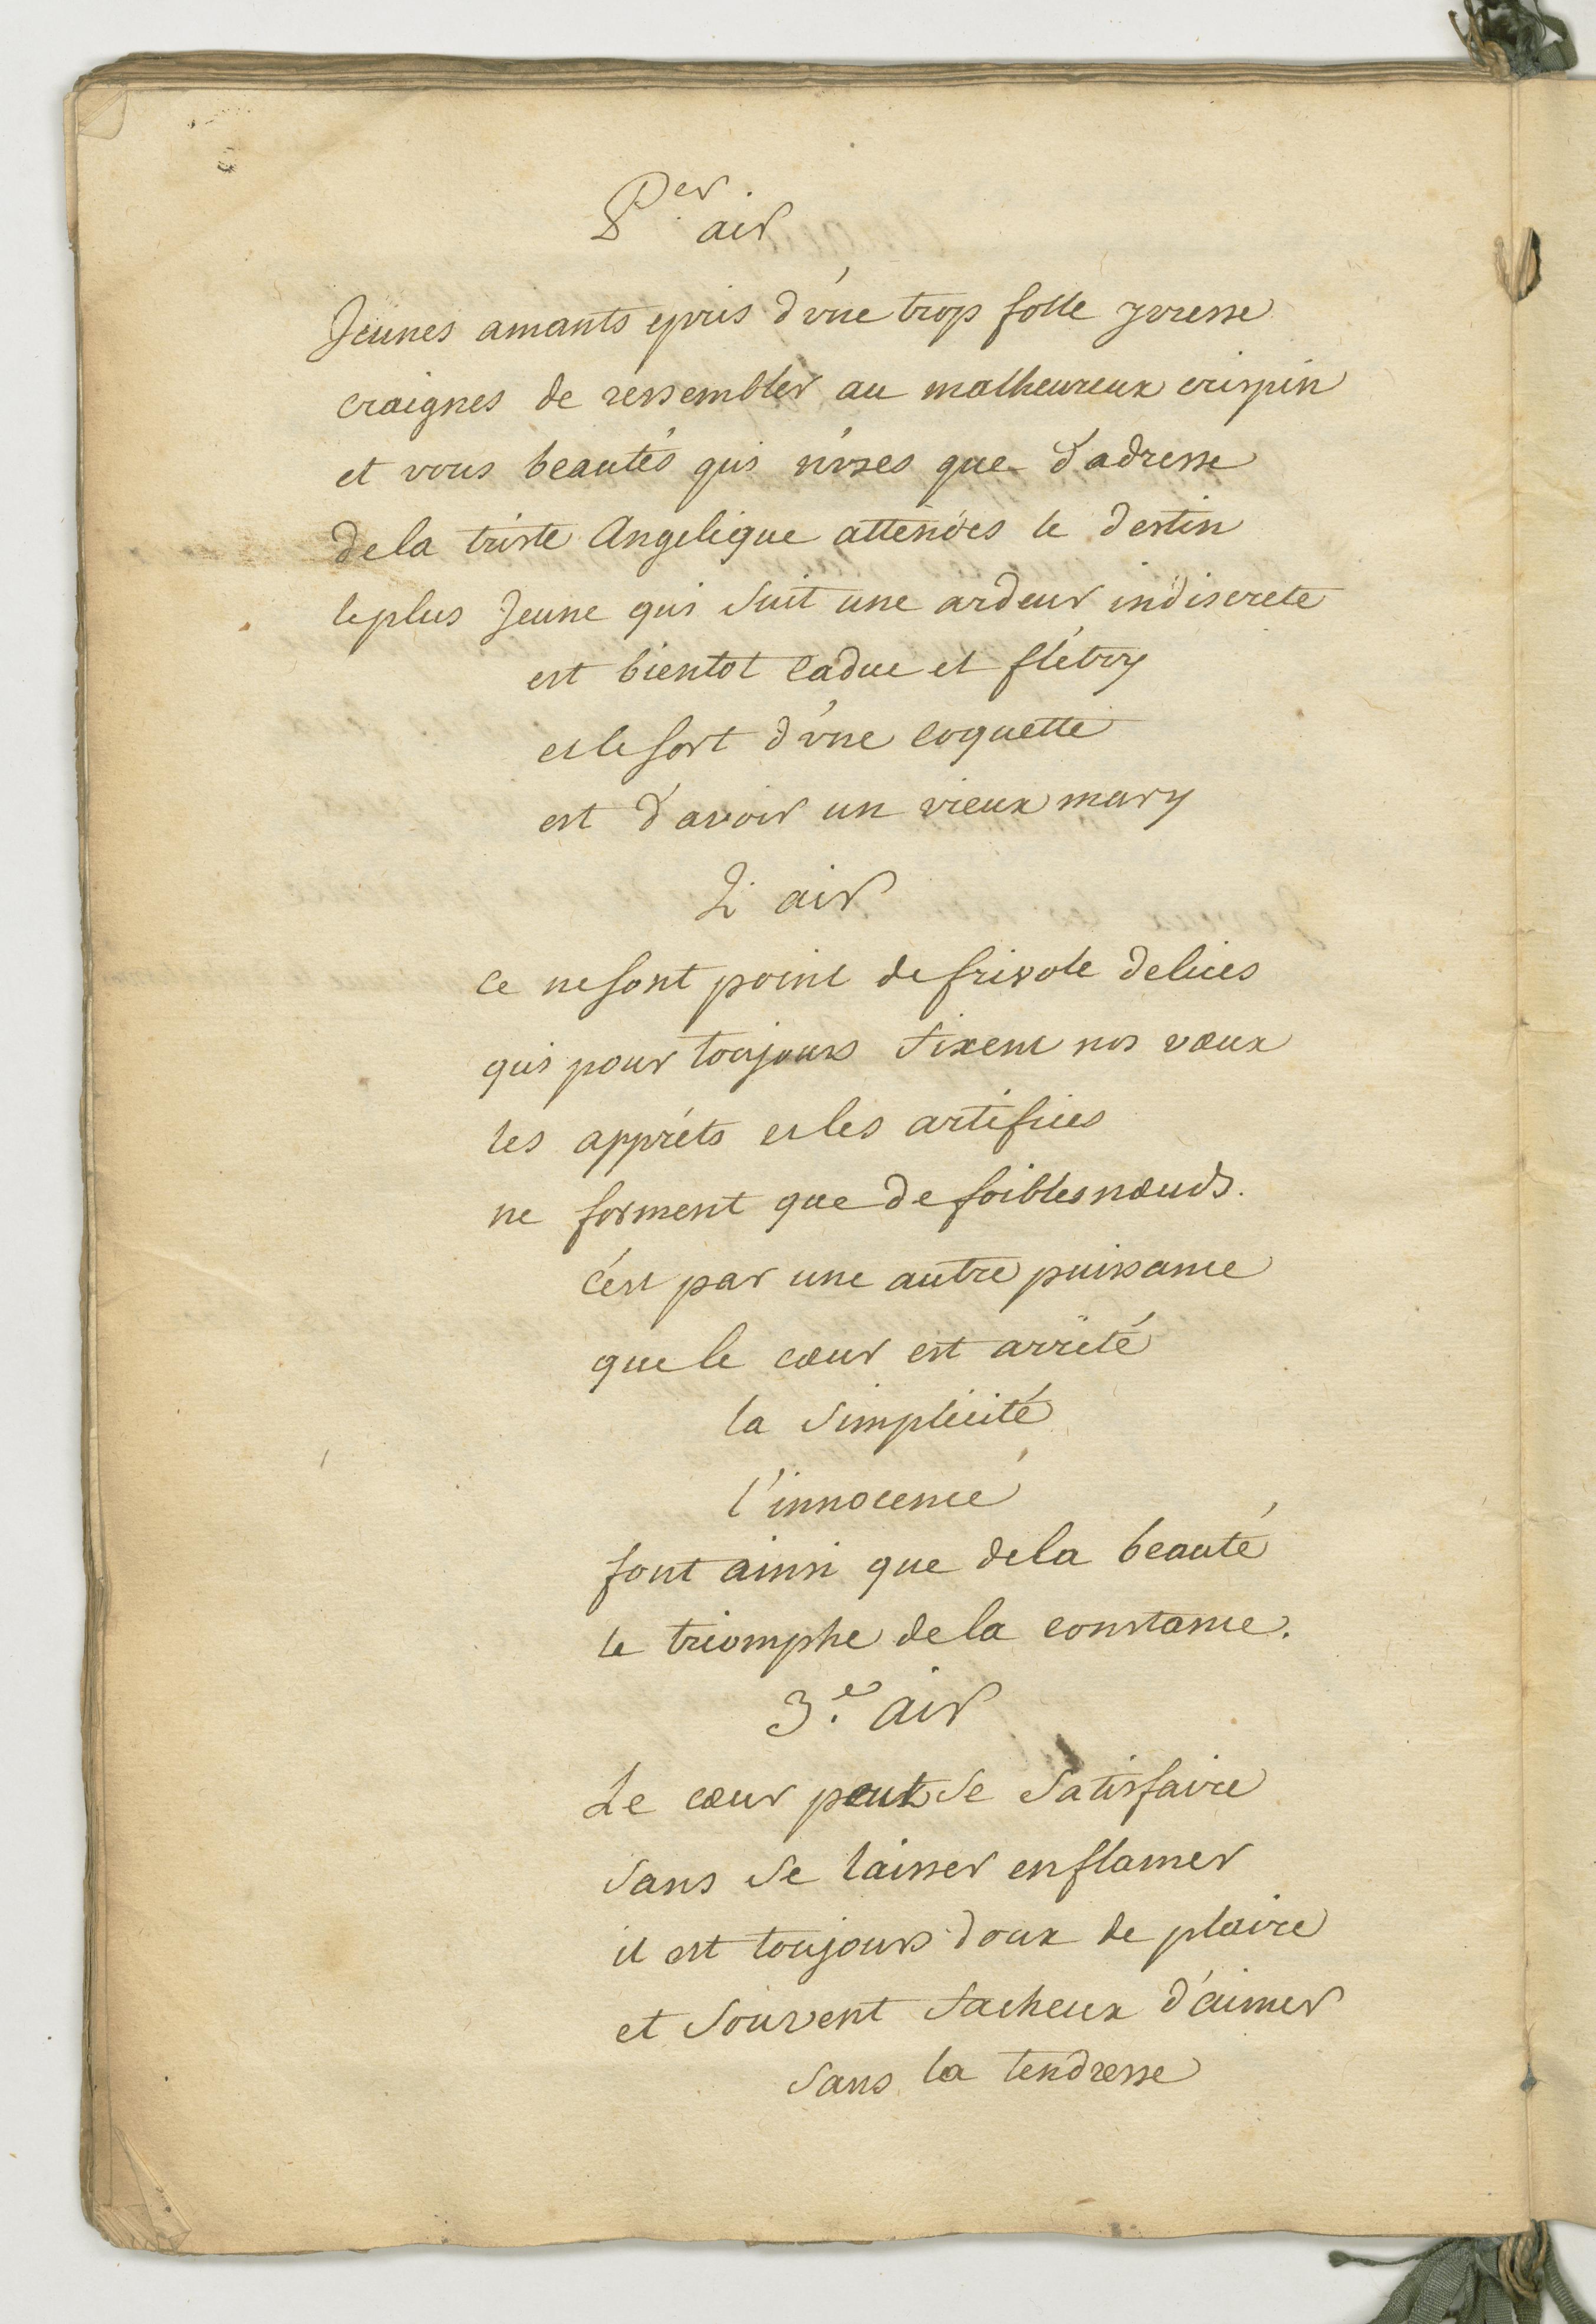 P.er air
Jeunes amants epris d'vne trop folle yvresse
craignes de ressembler au malheureux crispin
et vous beautés qui n'vses que d'adresse
de la triste Angelique attendes le destin
le plus Jeune qui suit une ardeur indiscrete
est bientot caduc et flétry
et le sort d'vne coquette
est d'avoir un vieux mary
2. air
ce ne sont point de frivole delices
qui pour toujours fixent nos vœux
les appréts et les artifices
ne forment que de foibles nœuds.
c'est par une autre puissance
que le cœur est arrété
la simplicité
l'innocence
font ainsi que de la beauté
le triomphe de la constance.
3.e air
Le cœur peut se satisfaire
sans se laisser enflamer
il est toujours doux de plaire
et souvent facheux d'aimer
sans la tendresse